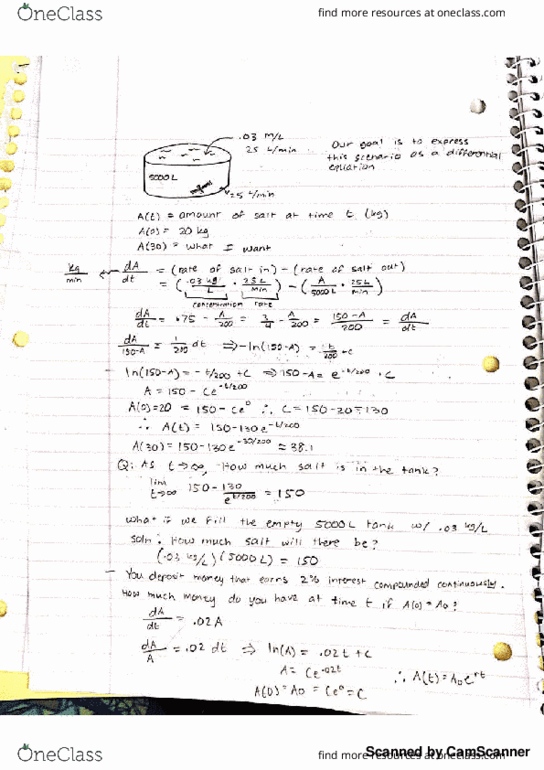 OneClass find more resources at oneclass.com
.03 M/L
25 L/min
Our goal is to express
this scenario as a differential
equation
5000L
25 L/min
A(t) = amount of salt at time t (kg)
A(0) = 20 kg
A(30) = what I want
kg/min ← dA/dt = (rate of salt in) - (rate of salt out)
= (.03 kg/L · 25 L/min) - (A/5000L · 25L/min)
concentration rate
dA/dt = .75 - A/200 = 3/4 - A/200 = 150-A/200 = dA/dt
dA/150-A = 1/200 dt ⇒ -ln(150-A) = t/200 + C
ln(150-A) = -t/200 + C ⇒ 150-A = e^-t/200 · C
A = 150 - Ce^-t/200
A(0)=20 = 150 - Ce^0 ∴ C = 150-20 = 130
∴ A(t) = 150-130e^-t/200
A(30) = 150-130e^-30/200 ≈ 38.1
Q: As t→∞, How much salt is in the tank?
lim t→∞ 150 - 130/e^t/200 = 150
what if we fill the empty 5000L tank w/ .03 kg/L
soln. How much salt will there be?
(.03 kg/L)(5000L) = 150
- You deposit money that earns 2% interest compounded continuously.
How much money do you have at time t if A(0) = A0?
dA/dt = .02A
dA/A = .02 dt ⇒ ln(A) = .02t + C
A = Ce^.02t ∴ A(t) = A0e^rt
A(0) = A0 = Ce^0 = C
OneClass find more resources at oneclass.com
Scanned by CamScanner